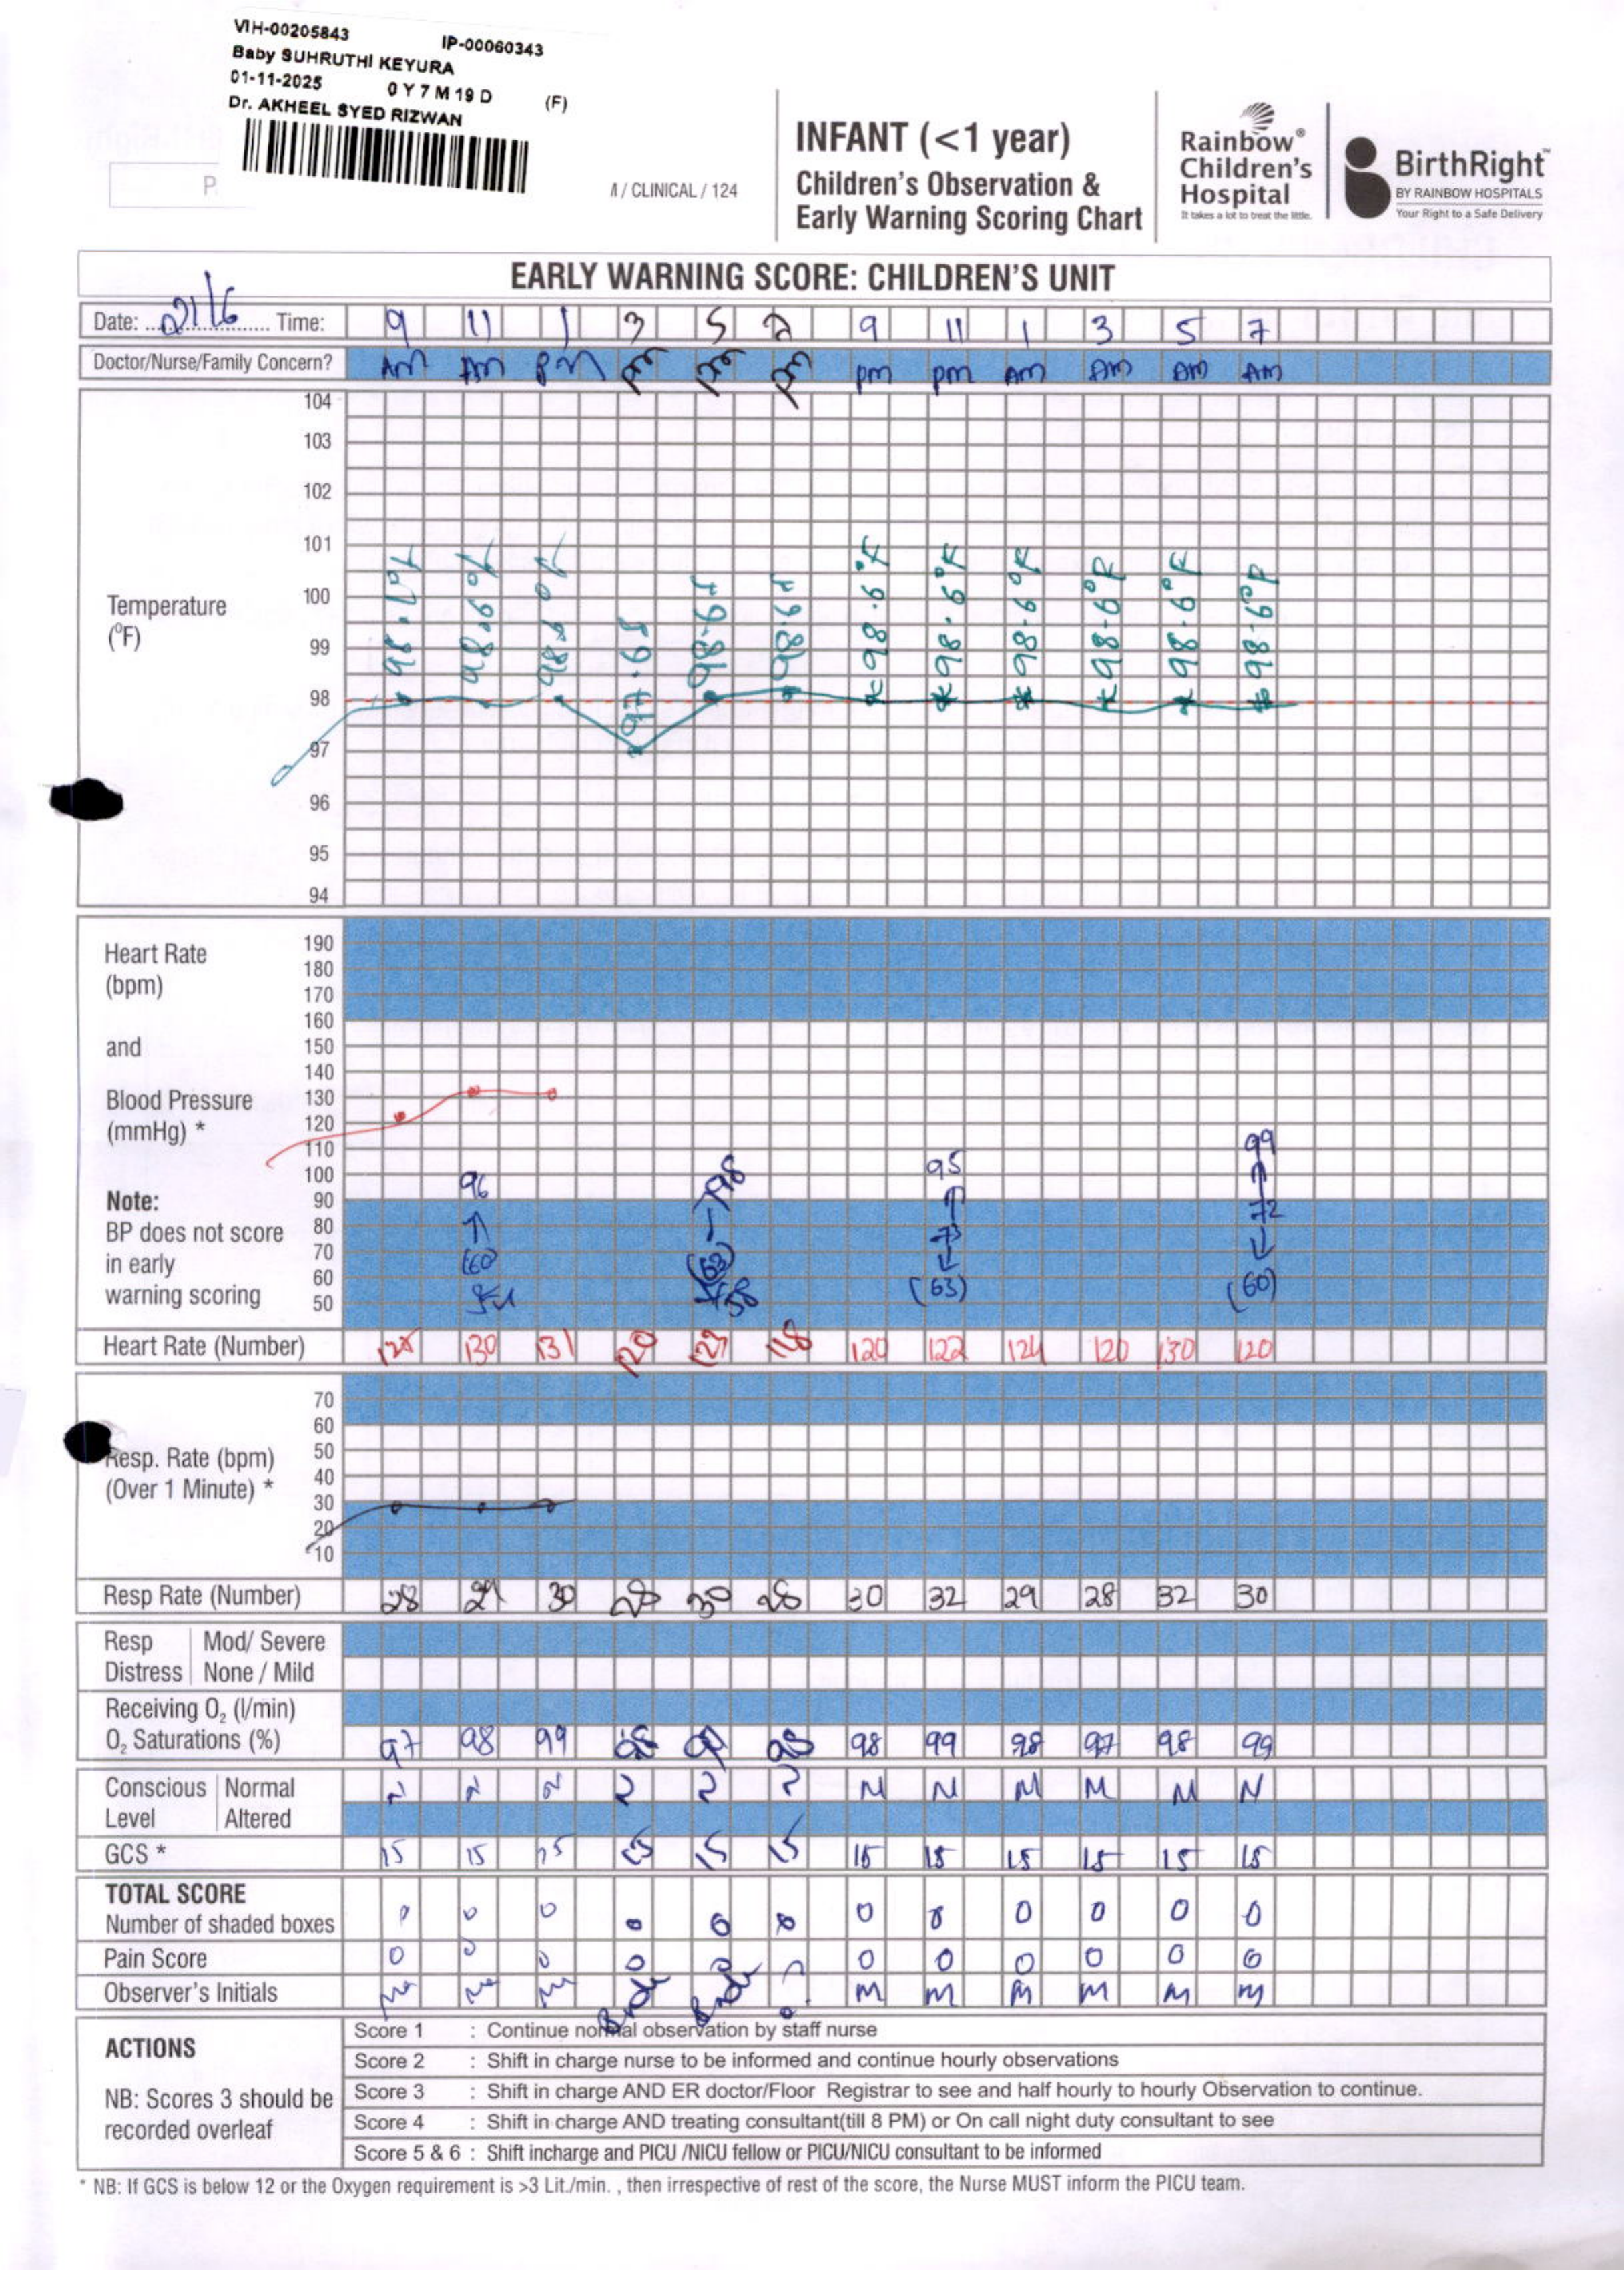 VIH-00205843 IP-00060343
Baby SUHRUTHI KEYURA
01-11-2025 0 Y 7 M 19 D (F)
Dr. AKHEEL SYED RIZWAN
P
/ CLINICAL / 124
INFANT (<1 year)
Children's Observation &
Early Warning Scoring Chart
Rainbow®
Children's
Hospital
It takes a lot to treat the little.
BirthRight™
BY RAINBOW HOSPITALS
Your Right to a Safe Delivery
EARLY WARNING SCORE: CHILDREN'S UNIT
Date: 21/6 Time: 9 11 1 3 5 7 9 11 1 3 5 7
Doctor/Nurse/Family Concern? AM AM PM pm pm pm pm pm AM AM AM AM
Temperature
(°F)
104
103
102
101
100
99
98
97
96
95
94
98.6°F 98.6°F 98.6°F 98.6°F 98.6°F 98.6°F
Heart Rate
(bpm)
and
Blood Pressure
(mmHg) *
Note:
BP does not score
in early
warning scoring
190
180
170
160
150
140
130
120
110
100
90
80
70
60
50
96 98 95 99
(60) 73 72
(63) (60)
Heart Rate (Number) 130 131 120 118 120 122 124 120 130 120
Resp. Rate (bpm)
(Over 1 Minute) *
70
60
50
40
30
20
10
Resp Rate (Number) 28 29 30 28 30 28 30 32 29 28 32 30
Resp Distress
Mod/ Severe
None / Mild
Receiving O₂ (l/min)
O₂ Saturations (%) 97 98 99 98 99 98 98 99 98 97 98 99
Conscious Level
Normal N N N N N N N N N N N N
Altered
GCS * 15 15 15 15 15 15 15 15 15 15 15 15
TOTAL SCORE
Number of shaded boxes 0 0 0 0 0 0 0 0 0 0 0 0
Pain Score 0 0 0 0 0 0 0 0 0 0 0
Observer's Initials M M M M M M
ACTIONS
NB: Scores 3 should be
recorded overleaf
Score 1 : Continue normal observation by staff nurse
Score 2 : Shift in charge nurse to be informed and continue hourly observations
Score 3 : Shift in charge AND ER doctor/Floor Registrar to see and half hourly to hourly Observation to continue.
Score 4 : Shift in charge AND treating consultant(till 8 PM) or On call night duty consultant to see
Score 5 & 6 : Shift incharge and PICU /NICU fellow or PICU/NICU consultant to be informed
* NB: If GCS is below 12 or the Oxygen requirement is >3 Lit./min. , then irrespective of rest of the score, the Nurse MUST inform the PICU team.